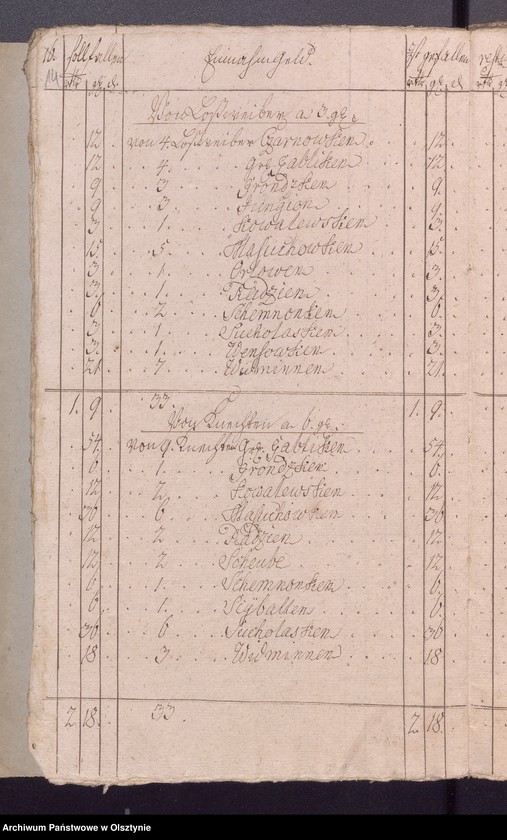 soll fallen Einnahm Geld. Ist gefallen
rthr. gl. d. rthr. gl. d.
Von Loßtreiber a 3. gl.
12. von 4. Loßtreiber Czarnowken 12.
12. 4. Grz Gabliken 12.
9. 3. Grondzken 9.
9. 3. Jungion 9.
3. 1. Kowalewsken 3.
15. 5. Masuchowken 15.
3. 1. Orlowen 3.
3. 1. Radzien 3.
6. 2. Schemnonken 6.
3. 1. Sucholasken 3.
3. 1. Wensowken 3.
21. 7. Widminnen 21.
1. 9. 33. 1. 9.
Von Knechten a 6. gl.
54. von 9. Knechten Grz. Gabliken 54.
6. 1. Grondzken 6.
12. 2. Kowalewsken 12.
36 6. Masuchowken 36
12. 2. Radzien 12.
12. 2 Scheube 12.
6. 1. Schemnonken 6.
6. 1. Sigballen 6.
36 6 Sucholasken 36
18. 3. Widminnen 18.
2. 18. 33. 2. 18.
Archiwum Państwowe w Olsztynie